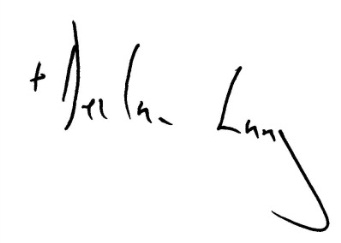 + Declan Lang